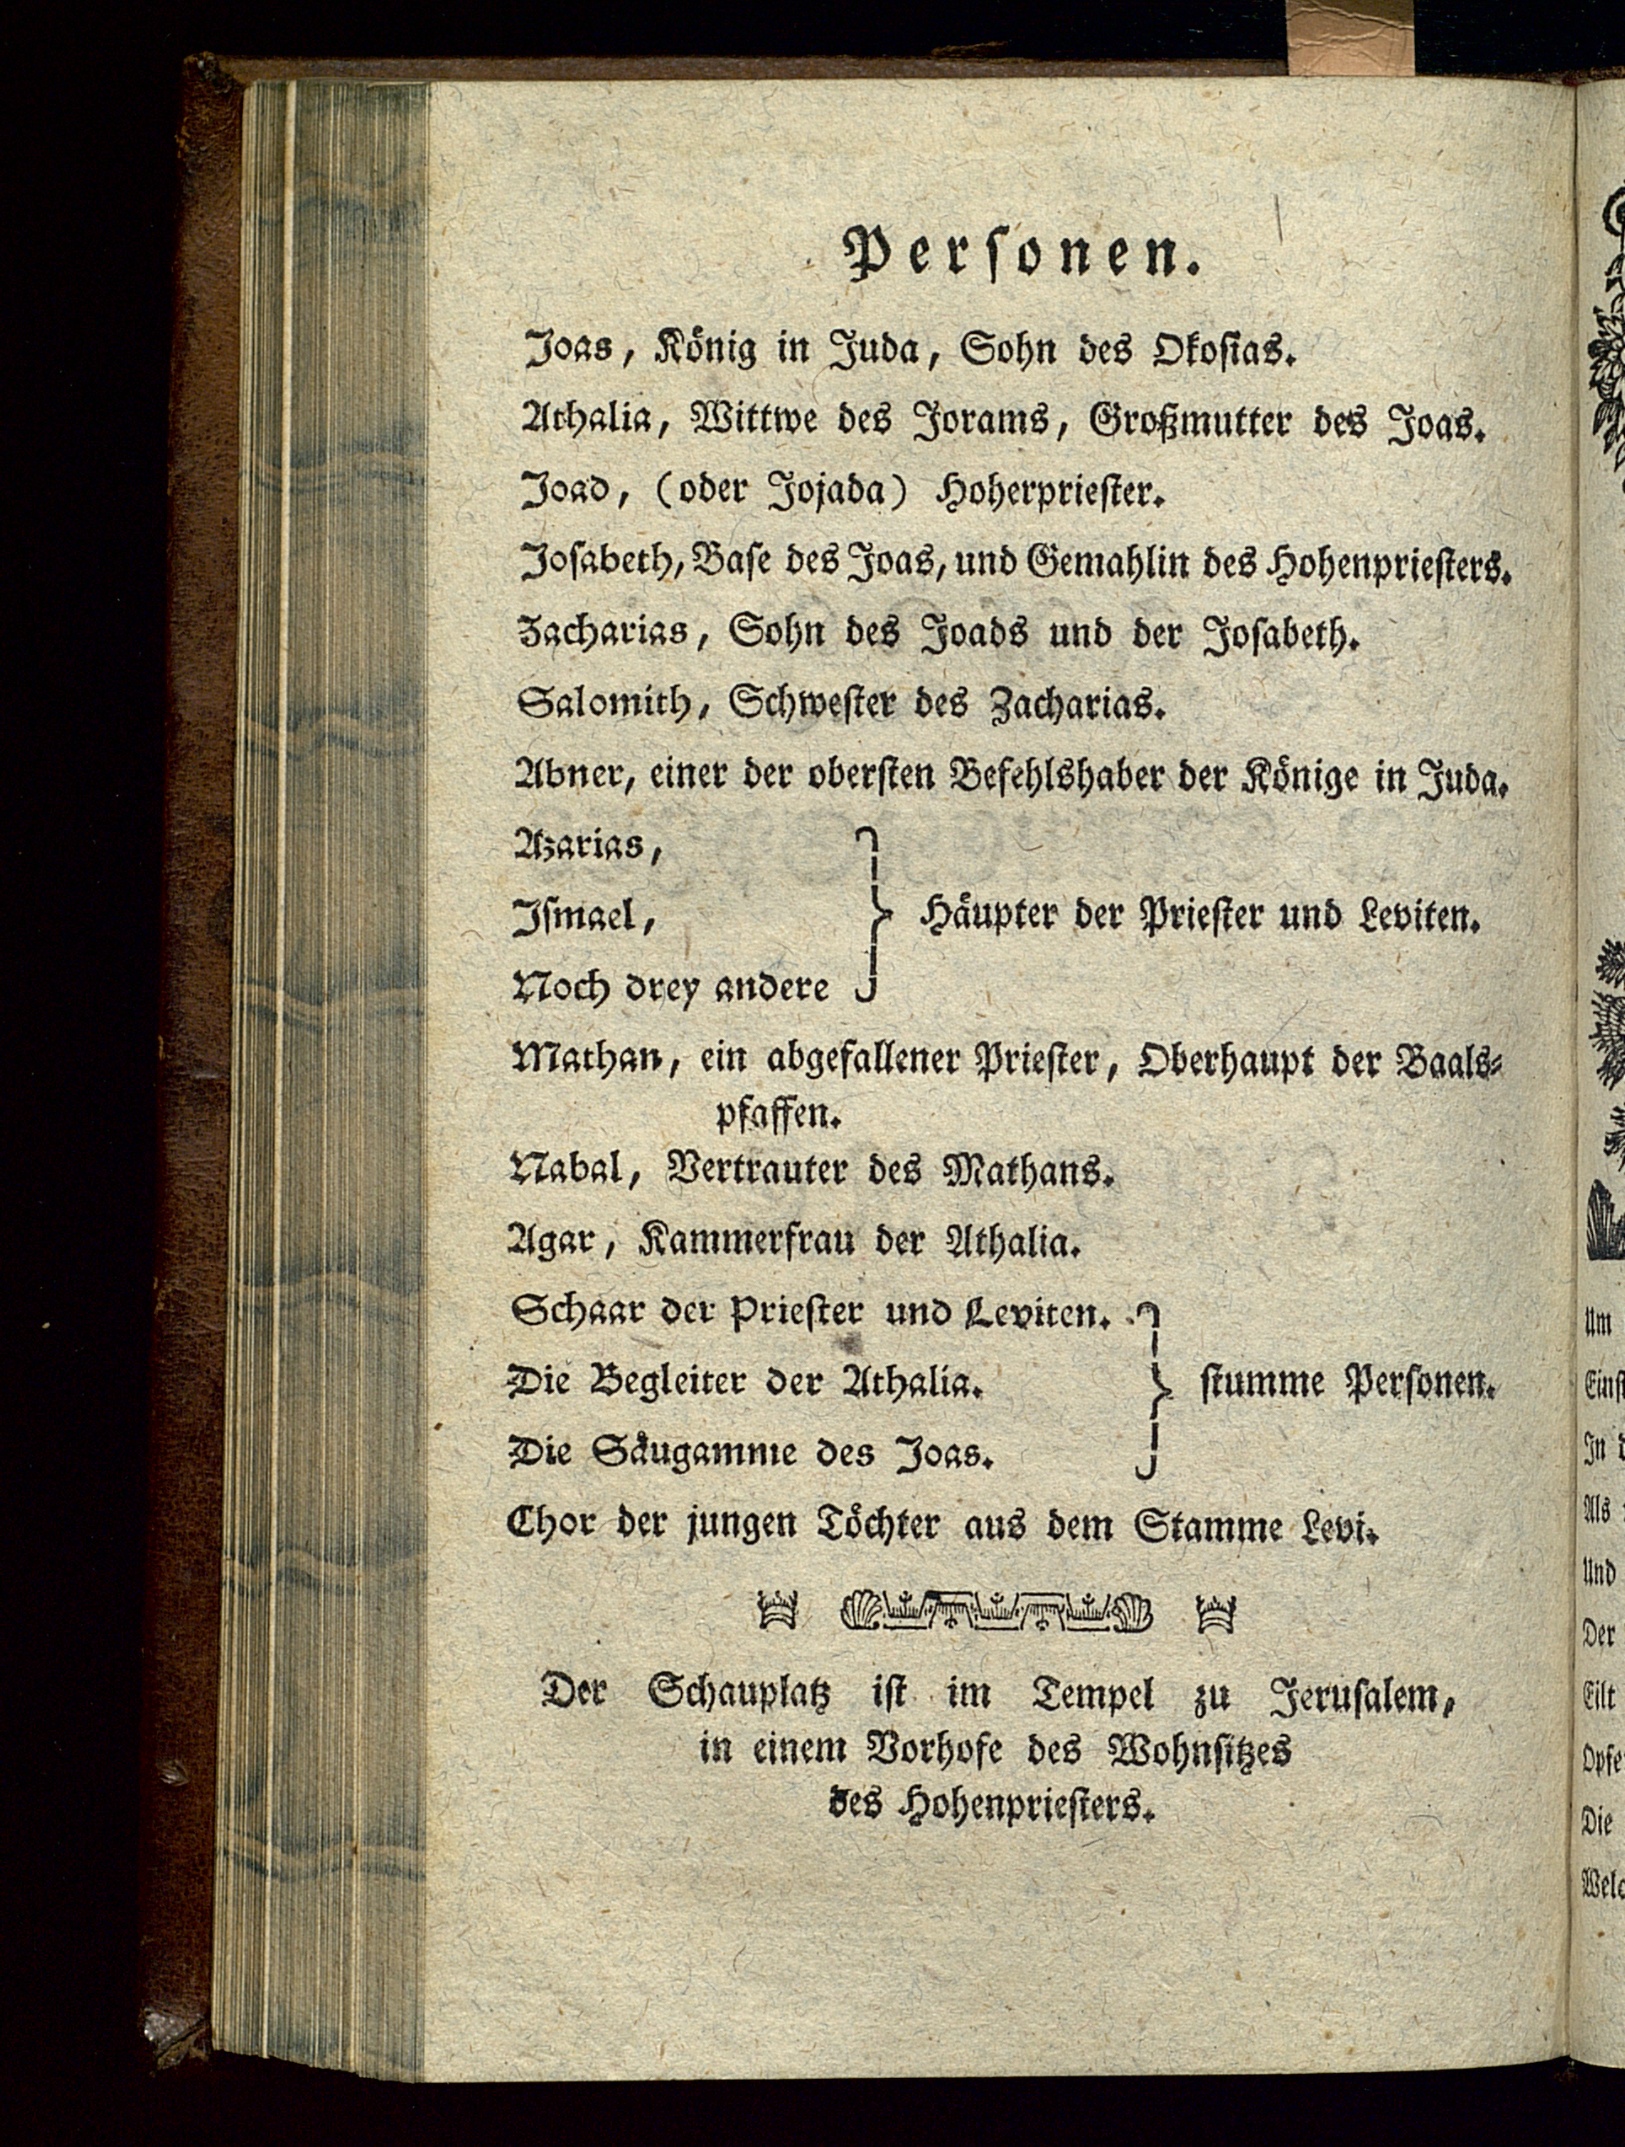 Personen.
Joas, König in Juda, Sohn des Okosias.
Athalia, Wittwe des Jorams, Großmutter des Joas.
Joad, (oder Jojada) Hoherpriester.
Josabeth, Base des Joas, und Gemahlin des Hohenpriesters.
Zacharias, Sohn des Joads und der Josabeth.
Salomith, Schwester des Zacharias.
Abner, einer der obersten Befehlshaber der Könige in Juda.
Azarias,
Ismael,
Noch drey andere
Häupter der Priester und Leviten.
Mathan, ein abgefallener Priester, Oberhaupt der Baals-
pfaffen.
Nabal, Vertrauter des Mathans.
Agar, Kammerfrau der Athalia.
Schaar der Priester und Leviten.
Die Begleiter der Athalia.
Die Säugamme des Joas.
stumme Personen.
Chor der jungen Töchter aus dem Stamme Levi.
Der Schauplatz ist im Tempel zu Jerusalem,
in einem Vorhofe des Wohnsitzes
des Hohenpriesters.
Um
In
Als
Und
Der
Eilt
Die